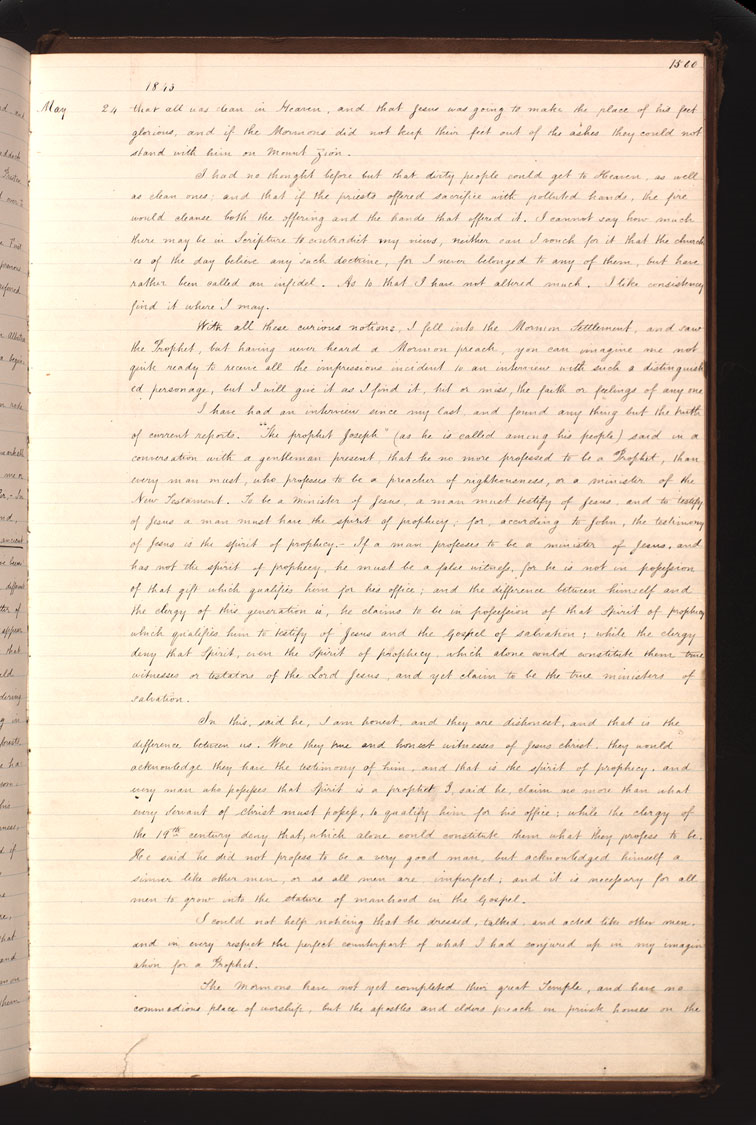 1500
1843
May 24 that all was clean in Heaven, and that Jesus was going to make the place of his feet
glorious, and if the Mormons did not keep their feet out of the ashes they could not
stand with him on Mount Zion.
I had no thought before but that dirty people could get to Heaven, as well
as clean ones; and that if the priests offered sacrifice with polluted hands, the fire
would cleanse both the offering and the hands that offered it. I cannot say how much
there may be in Scripture to contradict my views, neither can I vouch for it that the church
es of the day believe any such doctrine, for I never belonged to any of them, but have
rather been called an infidel. As to that I have not altered much. I like consistency
find it where I may.
With all these curious notions, I fell into the Mormon Settlement, and saw
the Prophet, but having never heard a Mormon preach, you can imagine me not
quite ready to receive all the impressions incident to an interview with such a distinguish
ed personage, but I will give it as I find it, hit or miss, the faith or feelings of any one
I have had an interview since my last, and found any thing but the truth
of current reports. "The prophet Joseph" (as he is called among his people) said in a
conversation with a gentleman present, that he no more professed to be a Prophet, than
every man must, who professes to be a preacher of righteousness, or a minister of the
New Testament. To be a minister of Jesus, a man must testify of Jesus, and to testify
of Jesus a man must have the spirit of prophecy; for, according to John, the testimony
of Jesus is the spirit of prophecy.– If a man professes to be a minister of Jesus, and
has not the spirit of prophecy, he must be a false witness, for he is not in possession
of that gift which qualifies him for his office; and the difference between himself and
the clergy of this generation is, he claims to be in possession of that Spirit of prophecy
which qualifies him to testify of Jesus and the Gospel of salvation; while the clergy
deny that Spirit, even the Spirit of prophecy, which alone could constitute them true
witnesses or testators of the Lord Jesus, and yet claim to be the true ministers of
salvation.
In this, said he, I am honest, and they are dishonest, and that is the
difference between us. Were they true and honest witnesses of Jesus Christ, they would
acknowledge they have the testimony of him, and that is the spirit of prophecy, and
every man who possesses that Spirit is a prophet. I, said he, claim no more than what
every servant of Christ must possess, to qualify him for his office; while the clergy of
the 19th century deny that, which alone could constitute them what they profess to be.
He said he did not profess to be a very good man, but acknowledged himself a
sinner like other men, or as all men are, imperfect; and it is necessary for all
men to grow into the stature of manhood in the Gospel.
I could not help noticing that he dressed, talked and acted like other men,
and in every respect the perfect counterpart of what I had conjured up in my imagin
ation for a Prophet.
The Mormons have not yet completed their great Temple, and have no
commodious place of worship, but the apostles and elders preach in private houses on the